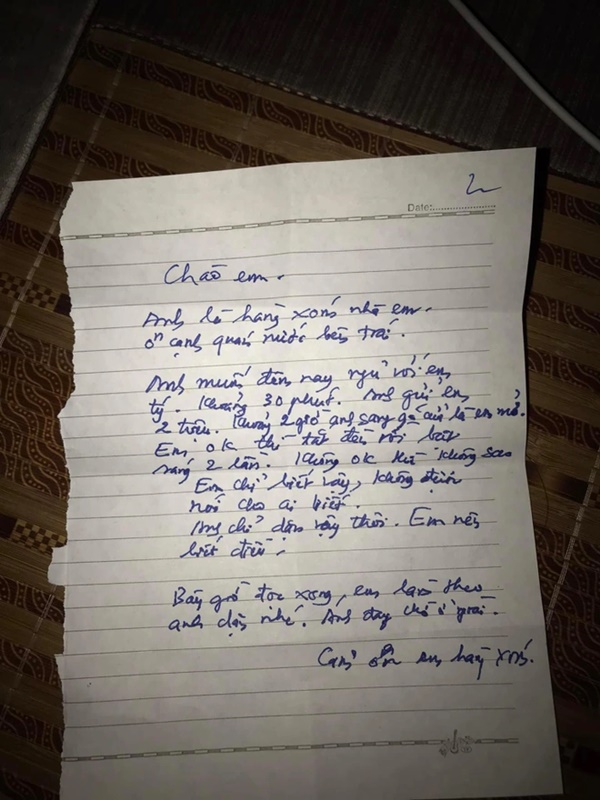 2
Date:
Chào em.
Anh là hàng xóm nhà em.
Ở cạnh quán nước bên trái.
Anh muốn đêm nay ngủ với em
tý. Khoảng 30 phút. Anh gửi em
2 triệu. Khoảng 2 giờ anh sang gõ cửa là em mở.
Em ok thì tắt đèn rồi bật
sáng 2 lần. Không ok thì không sao
Em chỉ biết vậy, không được
nói cho ai biết.
Anh chỉ dặn vậy thôi. Em nên
biết điều.
Bây giờ đọc xong, em làm theo
anh dặn nhé. Anh đang chờ ở
Cảm ơn em hàng xóm.